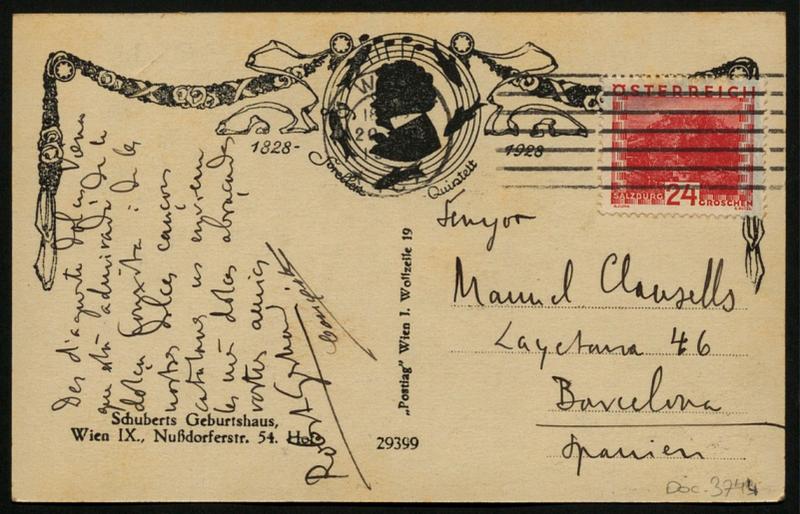 1828-
1928
Forellen Quintett
ÖSTERREICH
SALZBURG 24 GROSCHEN
Des d'aquesta Viena
que està admirada de la
dolça Conxita i de les
nostres belles cançons
catalanes us envien
les més dolces abraçades
vostres amics
Robert Gerhard
Conxita
Schuberts Geburtshaus,
Wien IX., Nußdorferstr. 54. Hof
„Postiag" Wien I. Wollzeile 19
29399
Senyor
Manuel Clausells
Layetana 46
Barcelona
Spanien
Doc. 3744